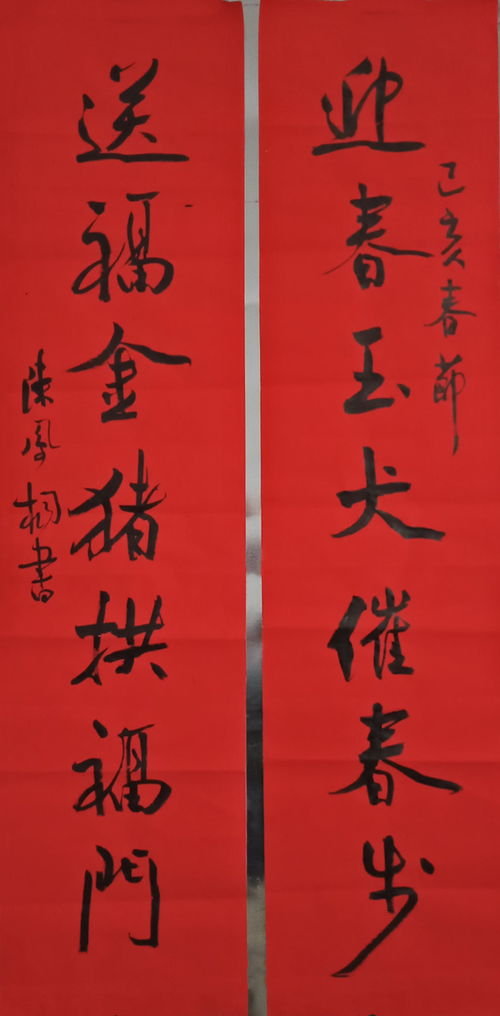 己亥春節
迎春玉犬催春步
送福金猪拱福門
陳鳳桐書